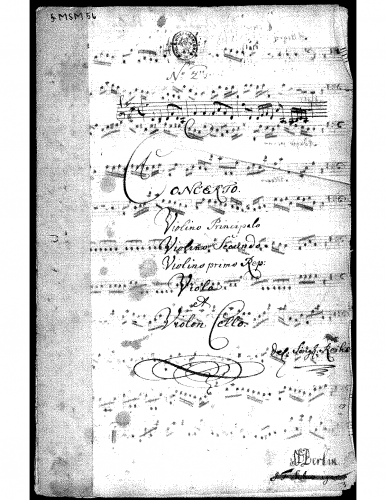 4 MSM 56
No 2
CONCERTO.
Violino Principalo
Violino Secondo
Violino primo Rep:
Viola
et
Violon Cello.
Del Sigr:
Berlin